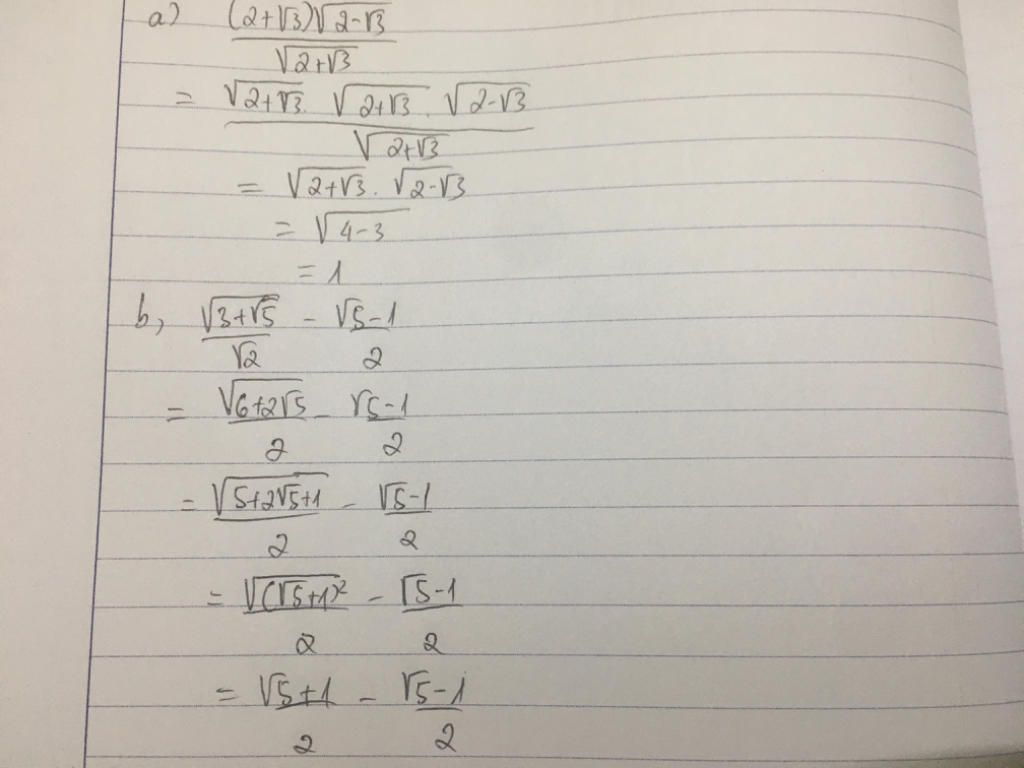 a) ((2+√3)√(2-√3))/√(2+√3)
= (√(2+√3) . √(2+√3) . √(2-√3))/√(2+√3)
= √(2+√3) . √(2-√3)
= √(4-3)
= 1
b, √(3+√5)/√2 - (√5-1)/2
= √(6+2√5)/2 - (√5-1)/2
= √(5+2√5+1)/2 - (√5-1)/2
= √((√5+1)²)/2 - (√5-1)/2
= (√5+1)/2 - (√5-1)/2